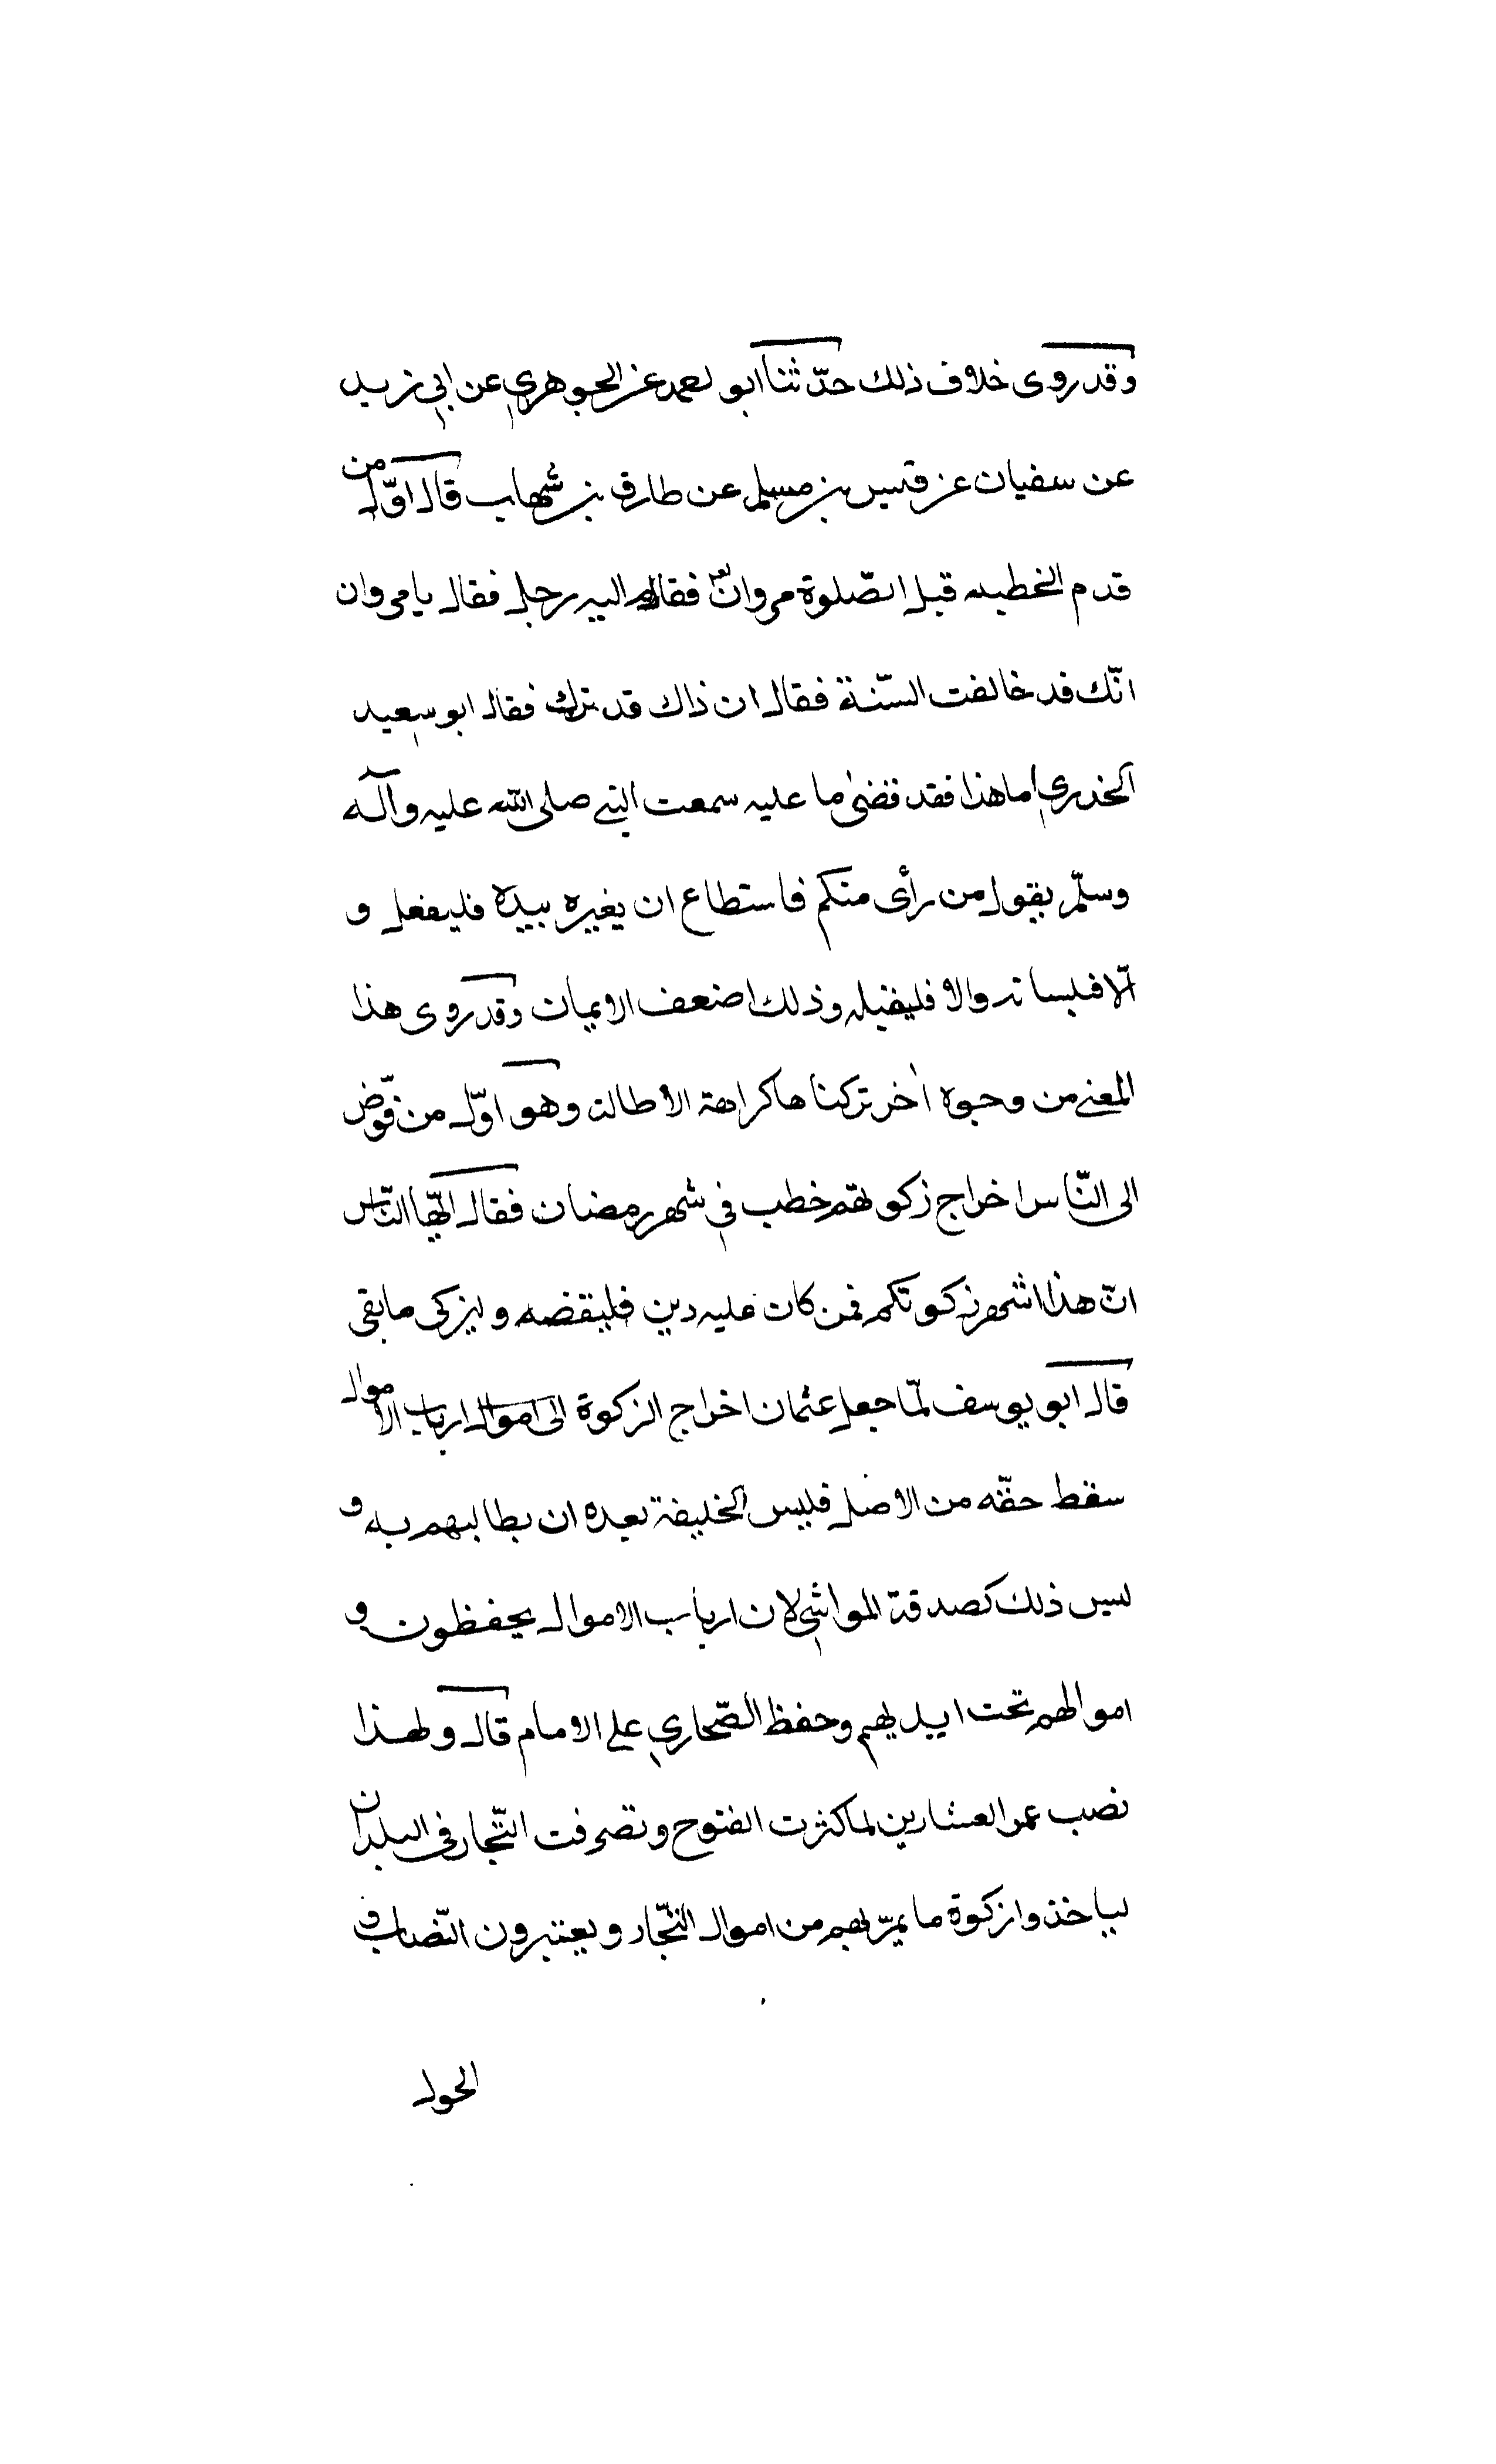 وقد روى خلاف ذلك حدّثنا ابو احمد عن الجوهري عن ابي زيد
عن سفيان عن قيس بن مسلم عن طارق بن شهاب قال اوّل من
قدم الخطبه قبل الصّلوة مروان فقام اليه رجل فقال يا مروان
انّك قد خالفت السّنة فقال ان ذاك قد ترك فقال ابو سعيد
الخدري اما هذا فقد قضى ما عليه سمعت النبي صلى الله عليه وآله
وسلّم يقول من رأى منكم فاستطاع ان يغيره بيده فليفعل و
الّا فبلسانه والا فليقبله وذلك اضعف الايمان وقد روى هذا
المعنى من وجوه اخر تركناها كراهة الاطالة وهو اوّل من فوّض
الى النّاس اخراج زكوتهم خطب في شهر رمضان فقال ايّها النّاس
انّ هذا شهر زكوتكم فمن كان عليه دين فليقضه وليزكى ما بقى
قال ابو يوسف لمّا جعل عثمان اخراج الزكوة الى اموال ارباب الاموال
سقط حقّه من الاصل فليس الخليفة بعده ان يطالبهم به و
ليس ذلك كصدقة المواشي لان ارباب الاموال يحفظون و
اموالهم تحت ايديهم وحفظ الصّحاري على الامام قال ولهذا
نصب عمر العشارين لما كثرت الفتوح وتصرفت التّجار في البلدان
لياخذوا زكوة ما يمرّ بهم من اموال التجّار ويعتبرون النّصاب و
الحول